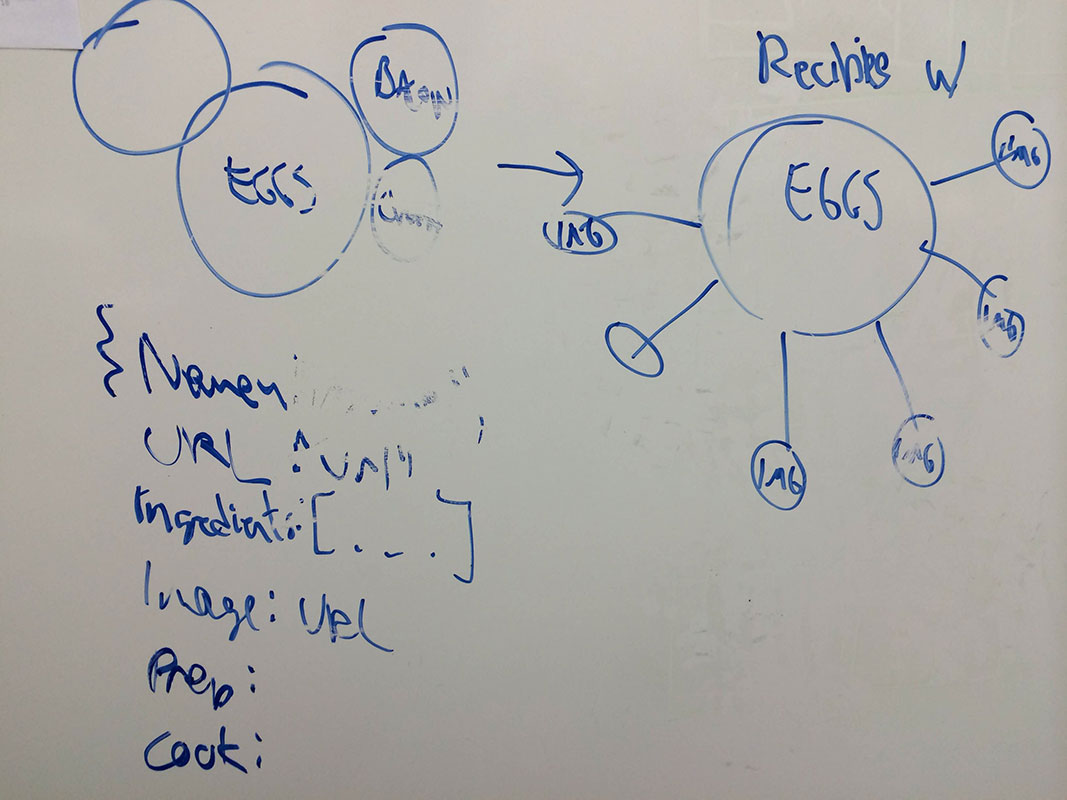 BAcon
EGGS
Recipies W
EGGS
IMG
IMG
IMG
IMG
IMG
{ Name:
URL: "url"
Ingredients: [...]
Image: URL
Prep:
Cook: